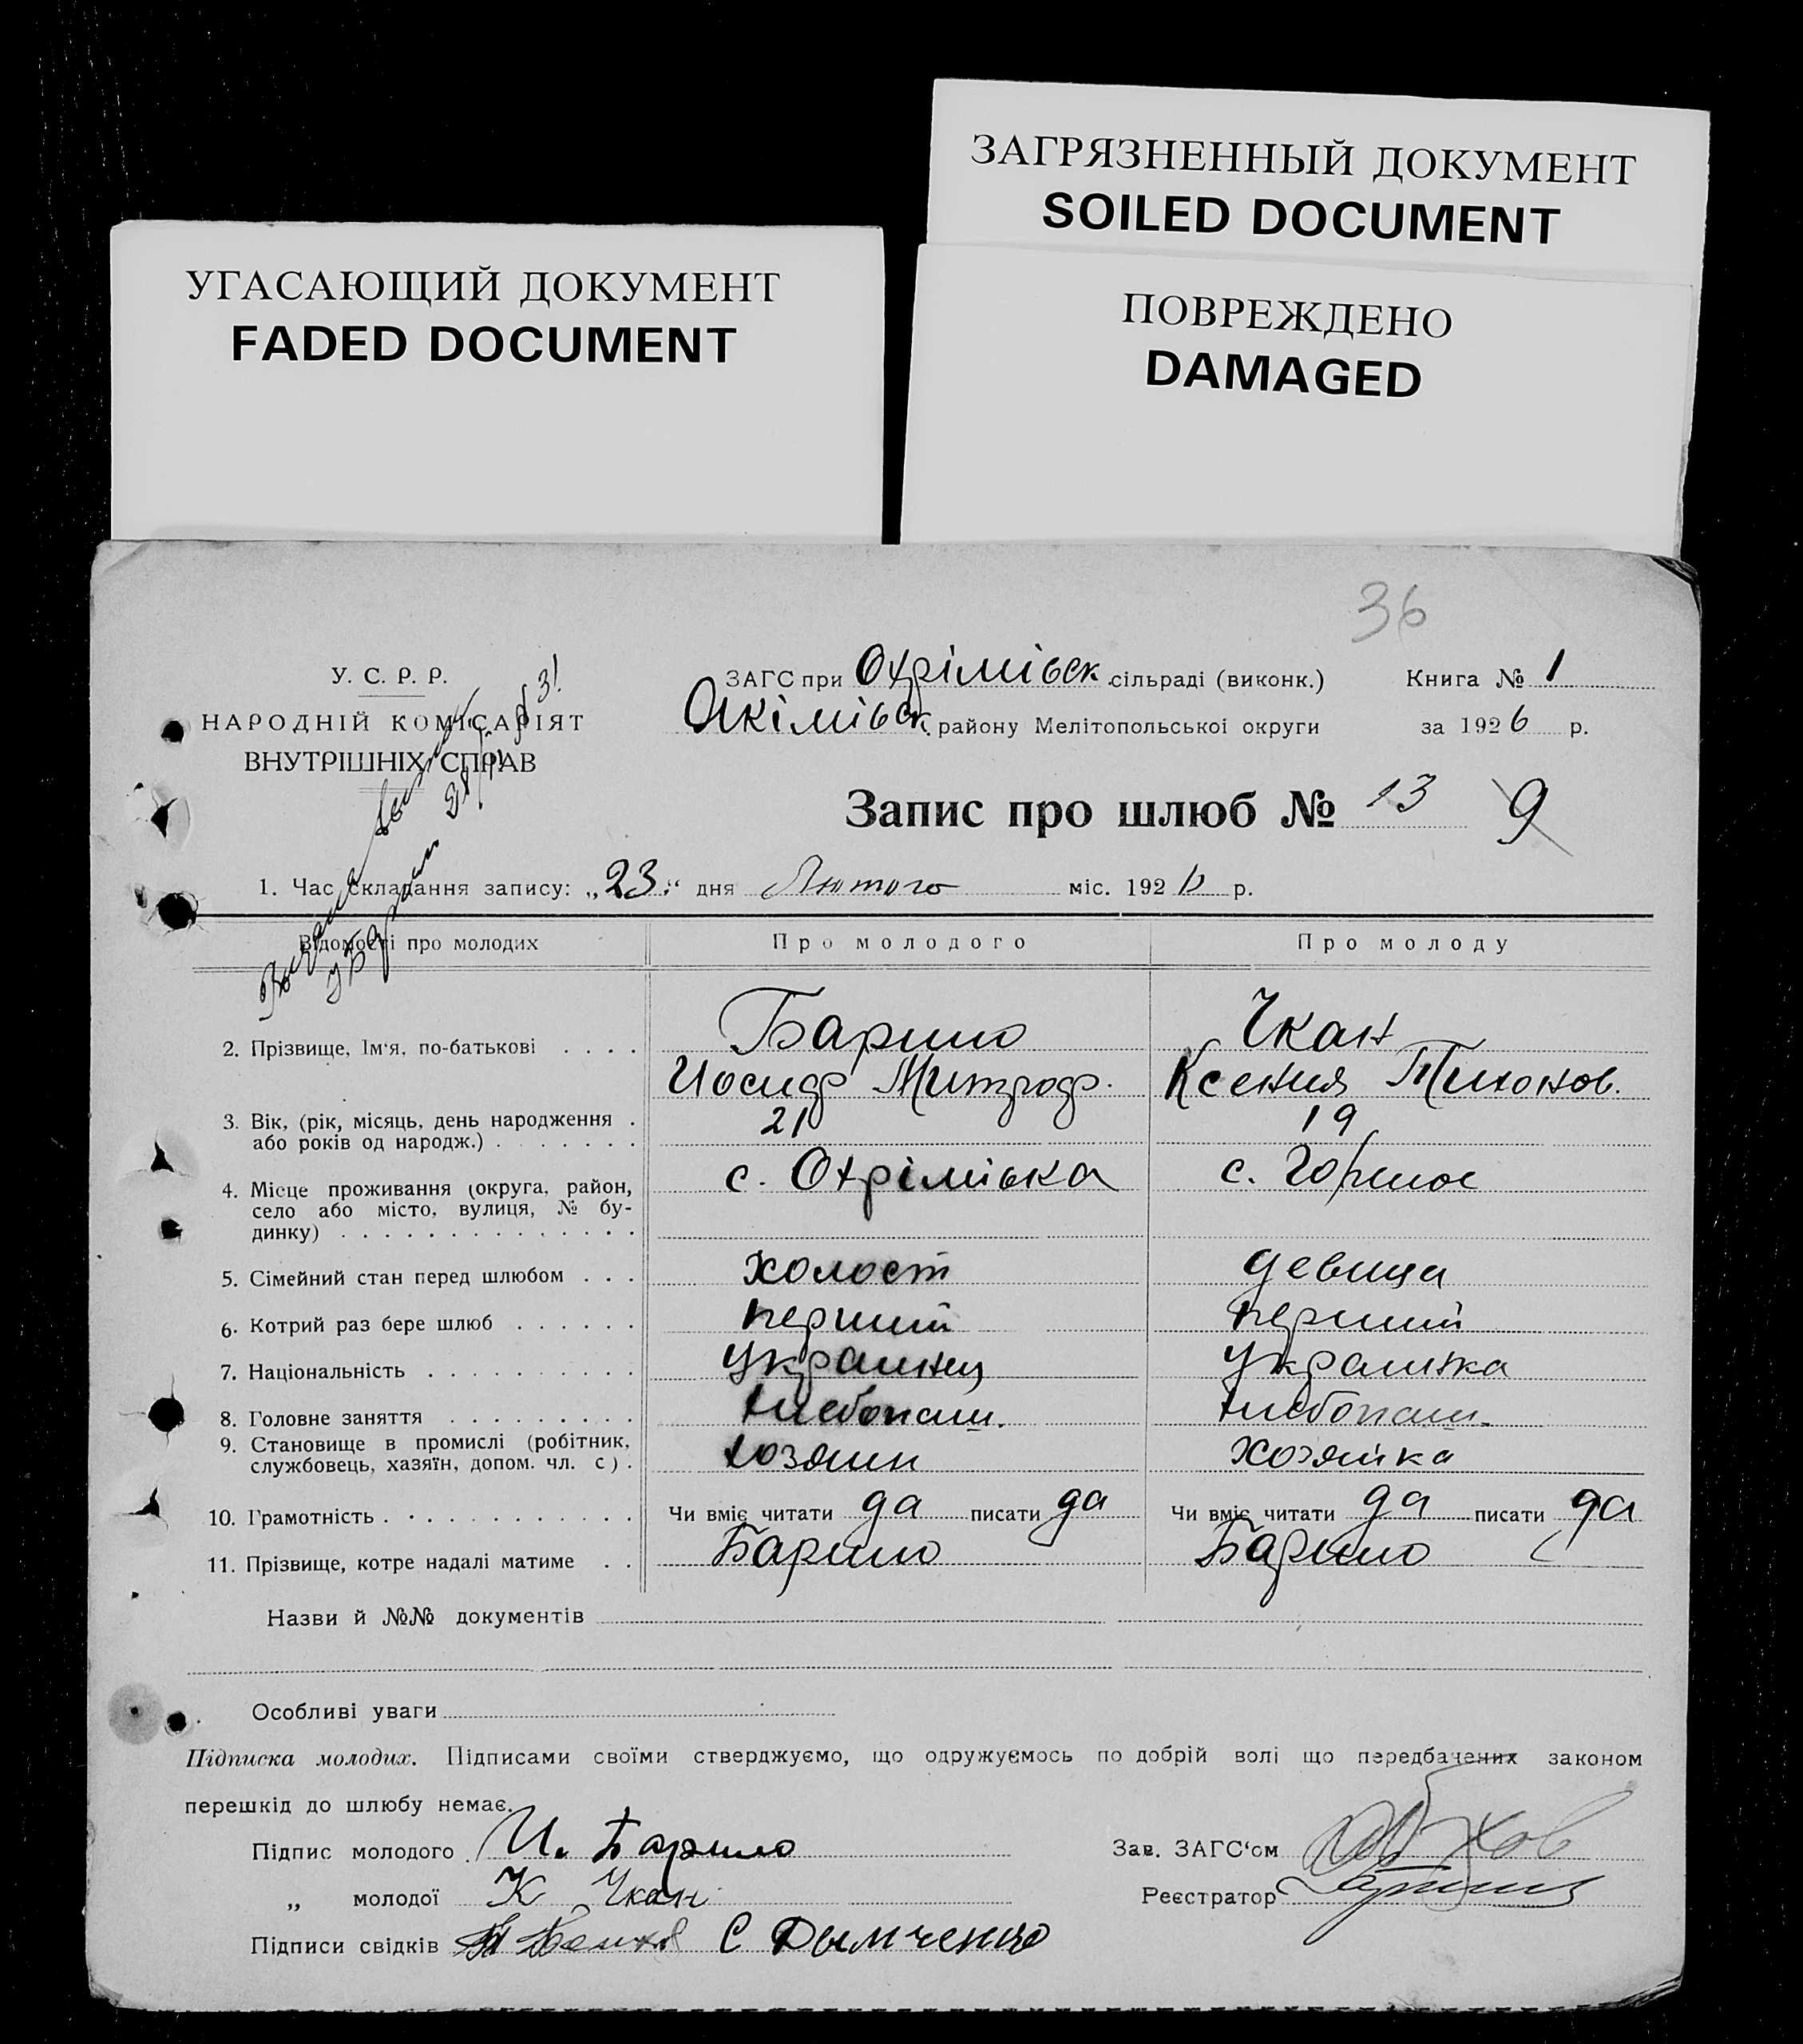 ЗАГРЯЗНЕННЫЙ ДОКУМЕНТ
SOILED DOCUMENT
УГАСАЮЩИЙ ДОКУМЕНТ
FADED DOCUMENT
ПОВРЕЖДЕНО
DAMAGED
36
У. С. Р. Р.
НАРОДНІЙ КОМІСАРІЯТ
ВНУТРІШНІХ СПРАВ
ЗАГС при Охрімівськ сільраді (виконк.)
Акімівськ району Мелітопольської округи
Книга № 1
за 1926 р.
Запис про шлюб № 13 9
1. Час складання запису: „23“ дня Лютого міс. 1926 р.
Відомості про молодих Про молодого Про молоду
2. Прізвище, Ім'я, по-батькові Барило Чкан
Иосиф Митроф. Ксения Тихонов.
3. Вік, (рік, місяць, день народження або років од народж.) 21 19
4. Місце проживання (округа, район, село або місто, вулиця, № будинку) с. Охрімівка с.
5. Сімейний стан перед шлюбом холост девица
6. Котрий раз бере шлюб перший перший
7. Національність Украинец Украинка
8. Головне заняття хлебопаш. хлебопаш.
9. Становище в промислі (робітник, службовець, хазяїн, допом. чл. с) хозяин хозяйка
10. Грамотність Чи вміє читати да писати да Чи вміє читати да писати да
11. Прізвище, котре надалі матиме Барило Барило
Назви й №№ документів
Особливі уваги
Підписка молодих. Підписами своїми стверджуємо, що одружуємось по добрій волі що передбачених законом
перешкід до шлюбу немає.
Підпис молодого И. Барило
„ молодої К Чкан
Підписи свідків С Дымченко
Зав. ЗАГС'ом
Реєстратор